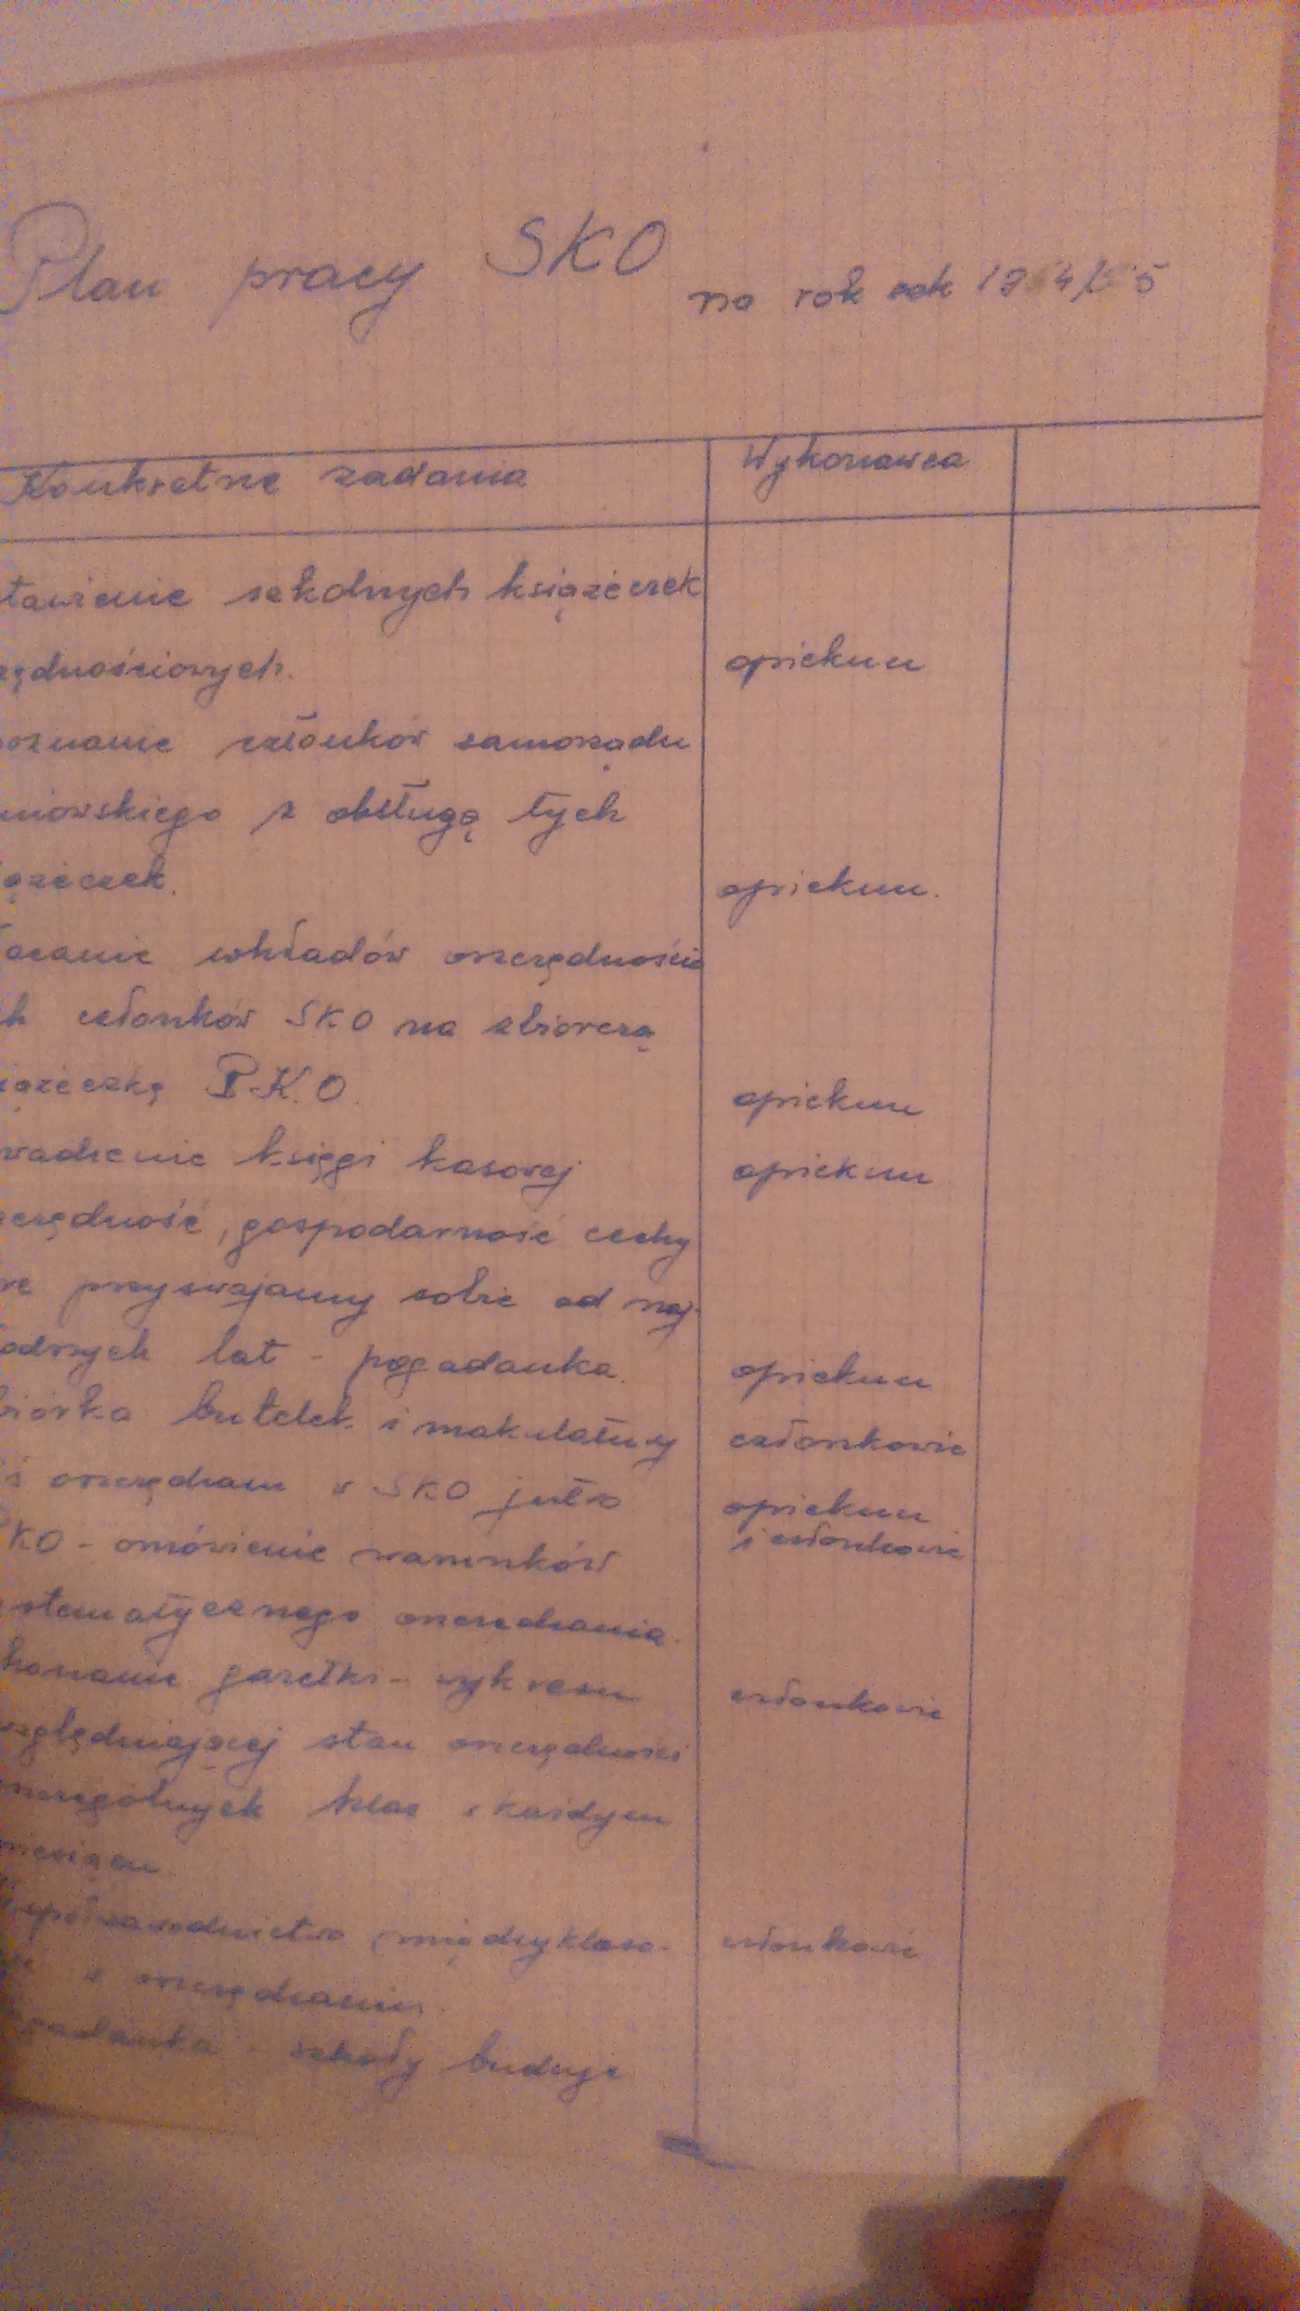 Plan pracy SKO
na rok szk
Konkretne zadania Wykonawca
tawienie szkolnych książeczek
zędnościowych. opiekun
oznanie członków samorządu
niowskiego z obsługą tych
ążeczek. opiekun.
acanie wkładów oszczędnościo
h członków SKO na zbiorczą
iążeczkę P.K.O. opiekun
wadzenie księgi kasowej opiekun
zczędność, gospodarność cechy
re przyswajamy sobie od naj-
odszych lat - pogadanka. opiekun
biórka butelek i makulatury członkowie
ś oszczędzam w SKO jutro opiekun
i członkowie
PKO - omówienie warunków
stematycznego oszczędzania.
konanie gazetki - wykresu członkowie
zględniającej stan oszczędności
szczególnych klas w każdym
miesiącu
współzawodnictwo międzyklaso- członkowie
w oszczędzaniu.
gadanka - szkoły buduje